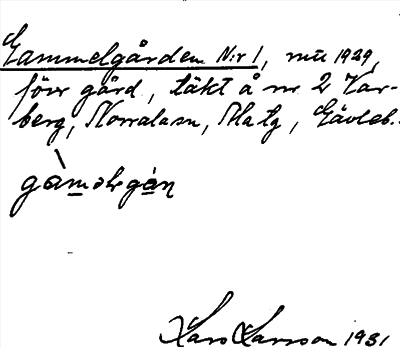 Gammelgården Nr 1, mtl 1929,
förr gård, täkt å nr 2 Kar-
berg, Norralasn, Hlstg, Gävleb.
gamolsgån
Lars Larsson 1931